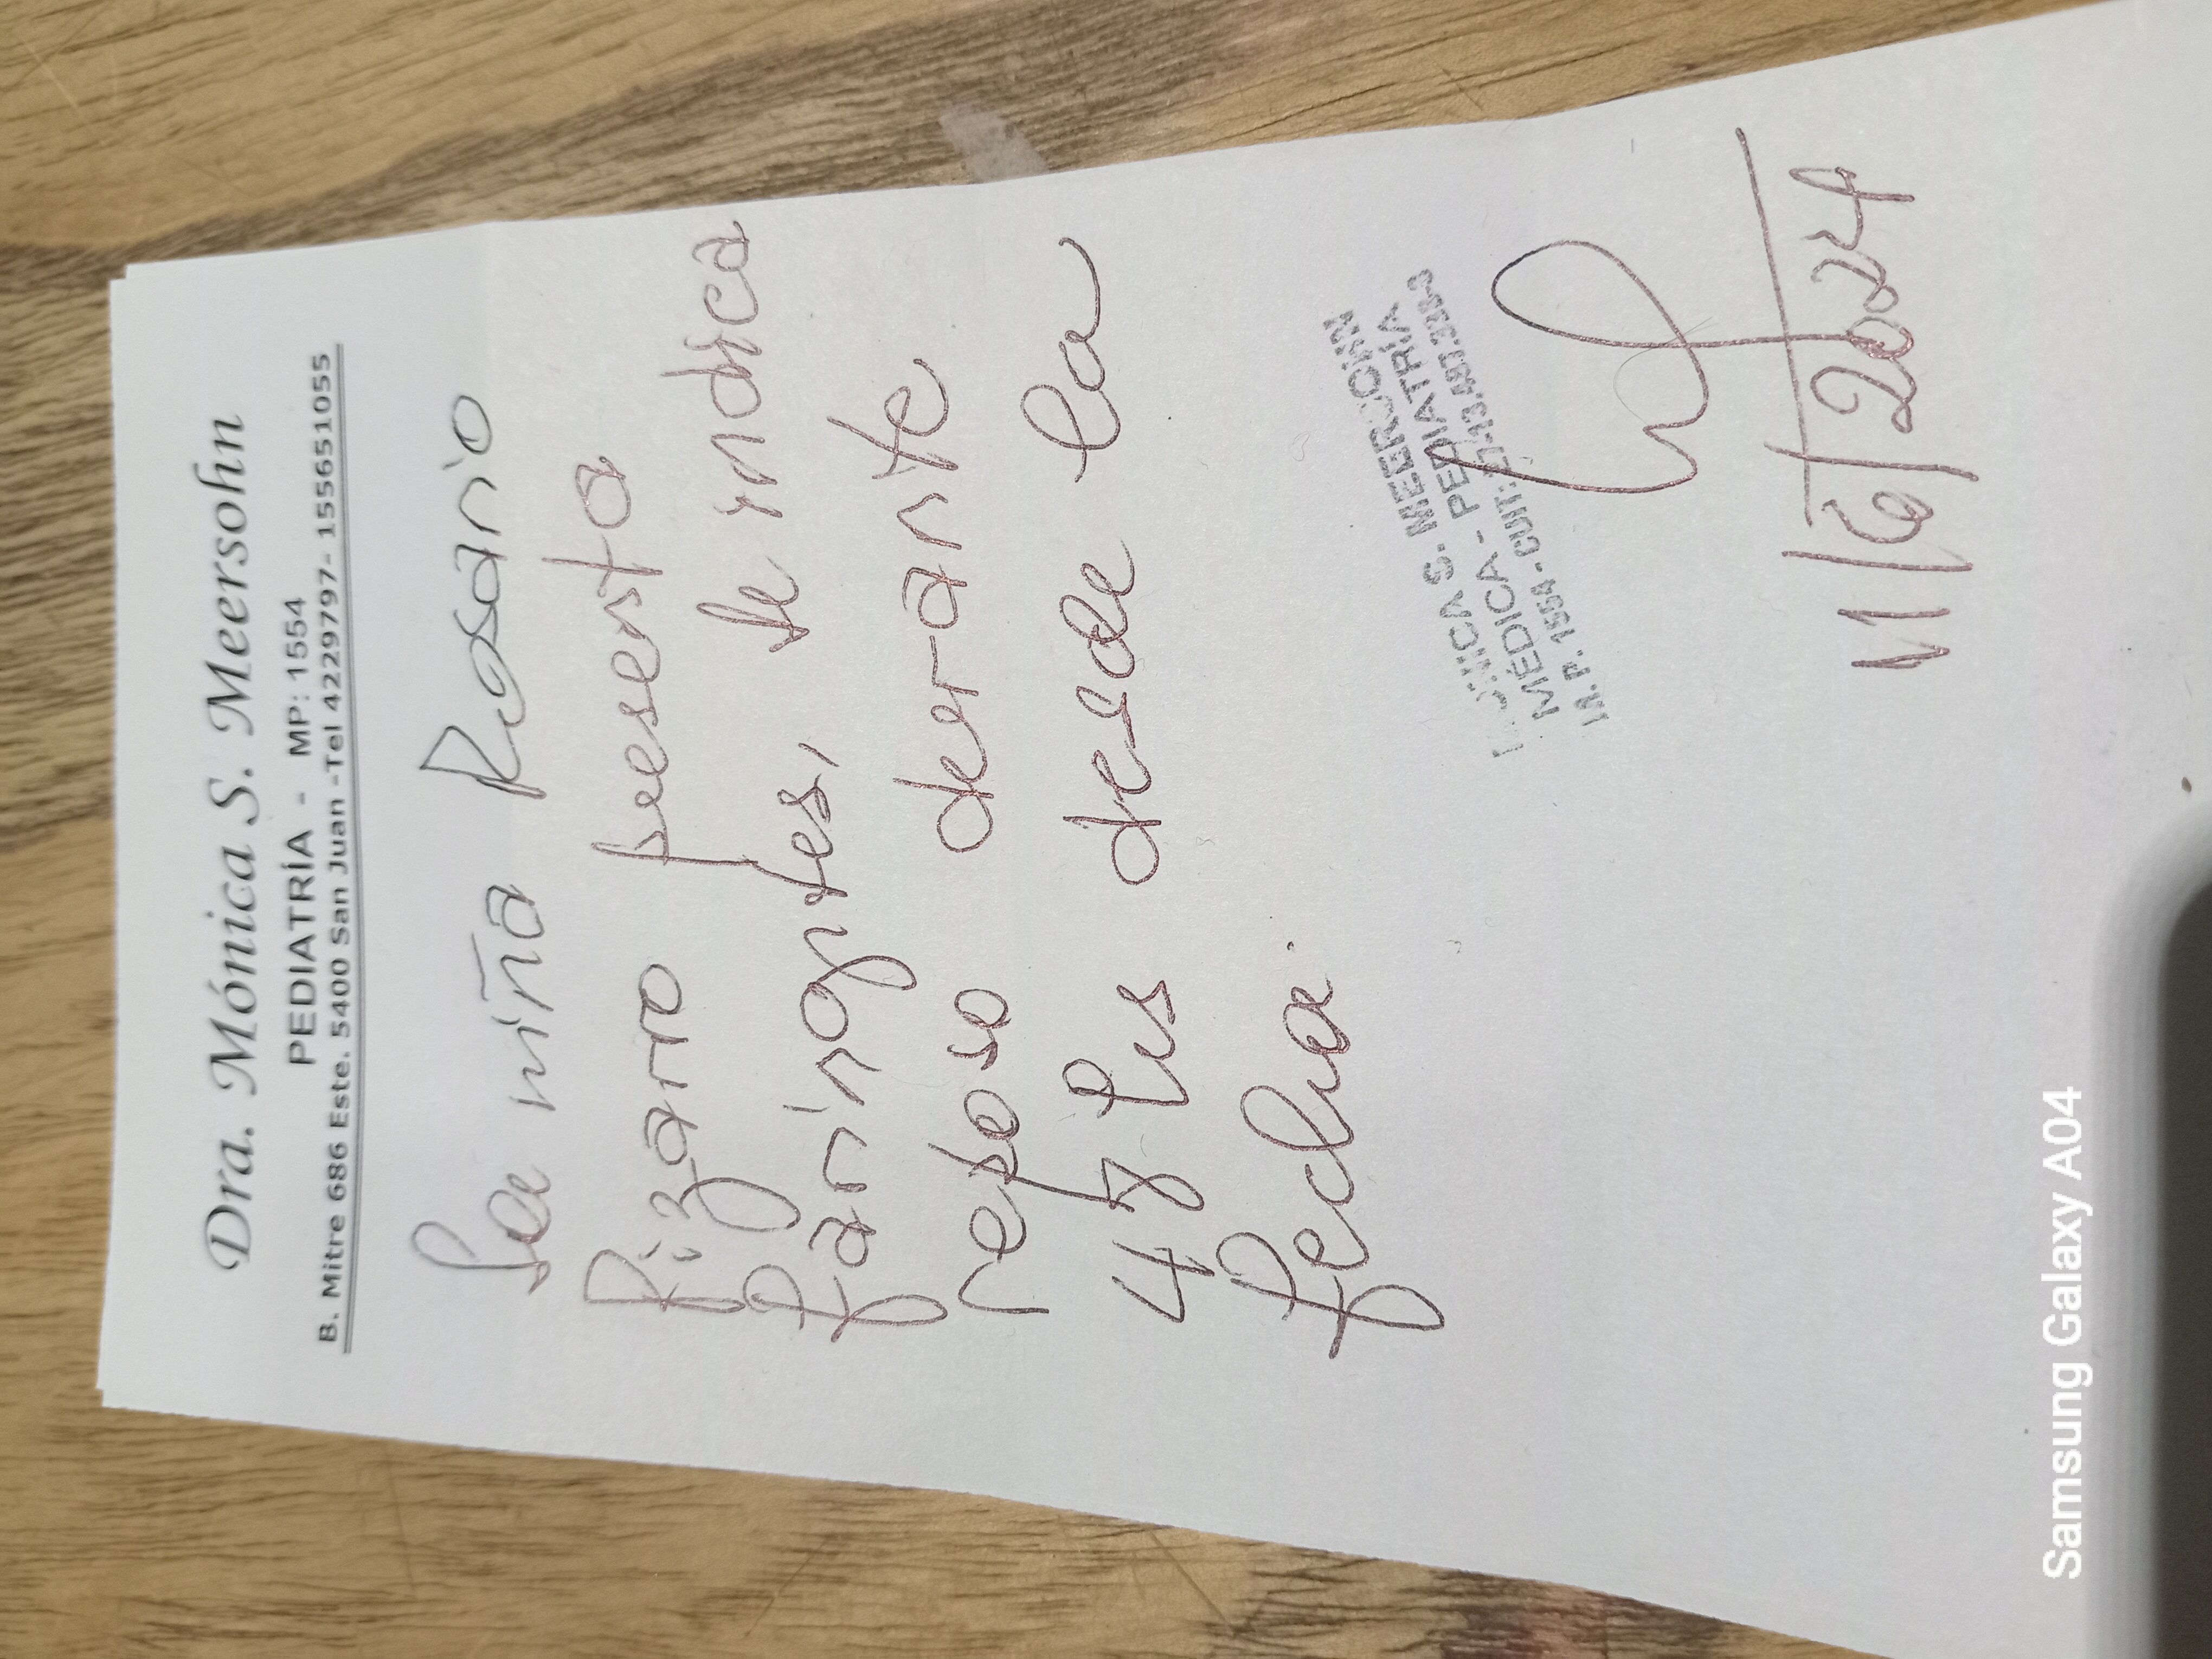 Dra. Mónica S. Meersohn
PEDIATRÍA - MP: 1554
B. Mitre 686 Este. 5400 San Juan -Tel 4229797- 155651055
La niña Rosario
Pizarro presenta
faringites, se indica
reposo durante
48 hs desde la
fecha.
MÓNICA S. MEERSOHN
MÉDICA - PEDIATRÍA
M.P. 1554 - CUIT:
11/6/2024
Samsung Galaxy A04